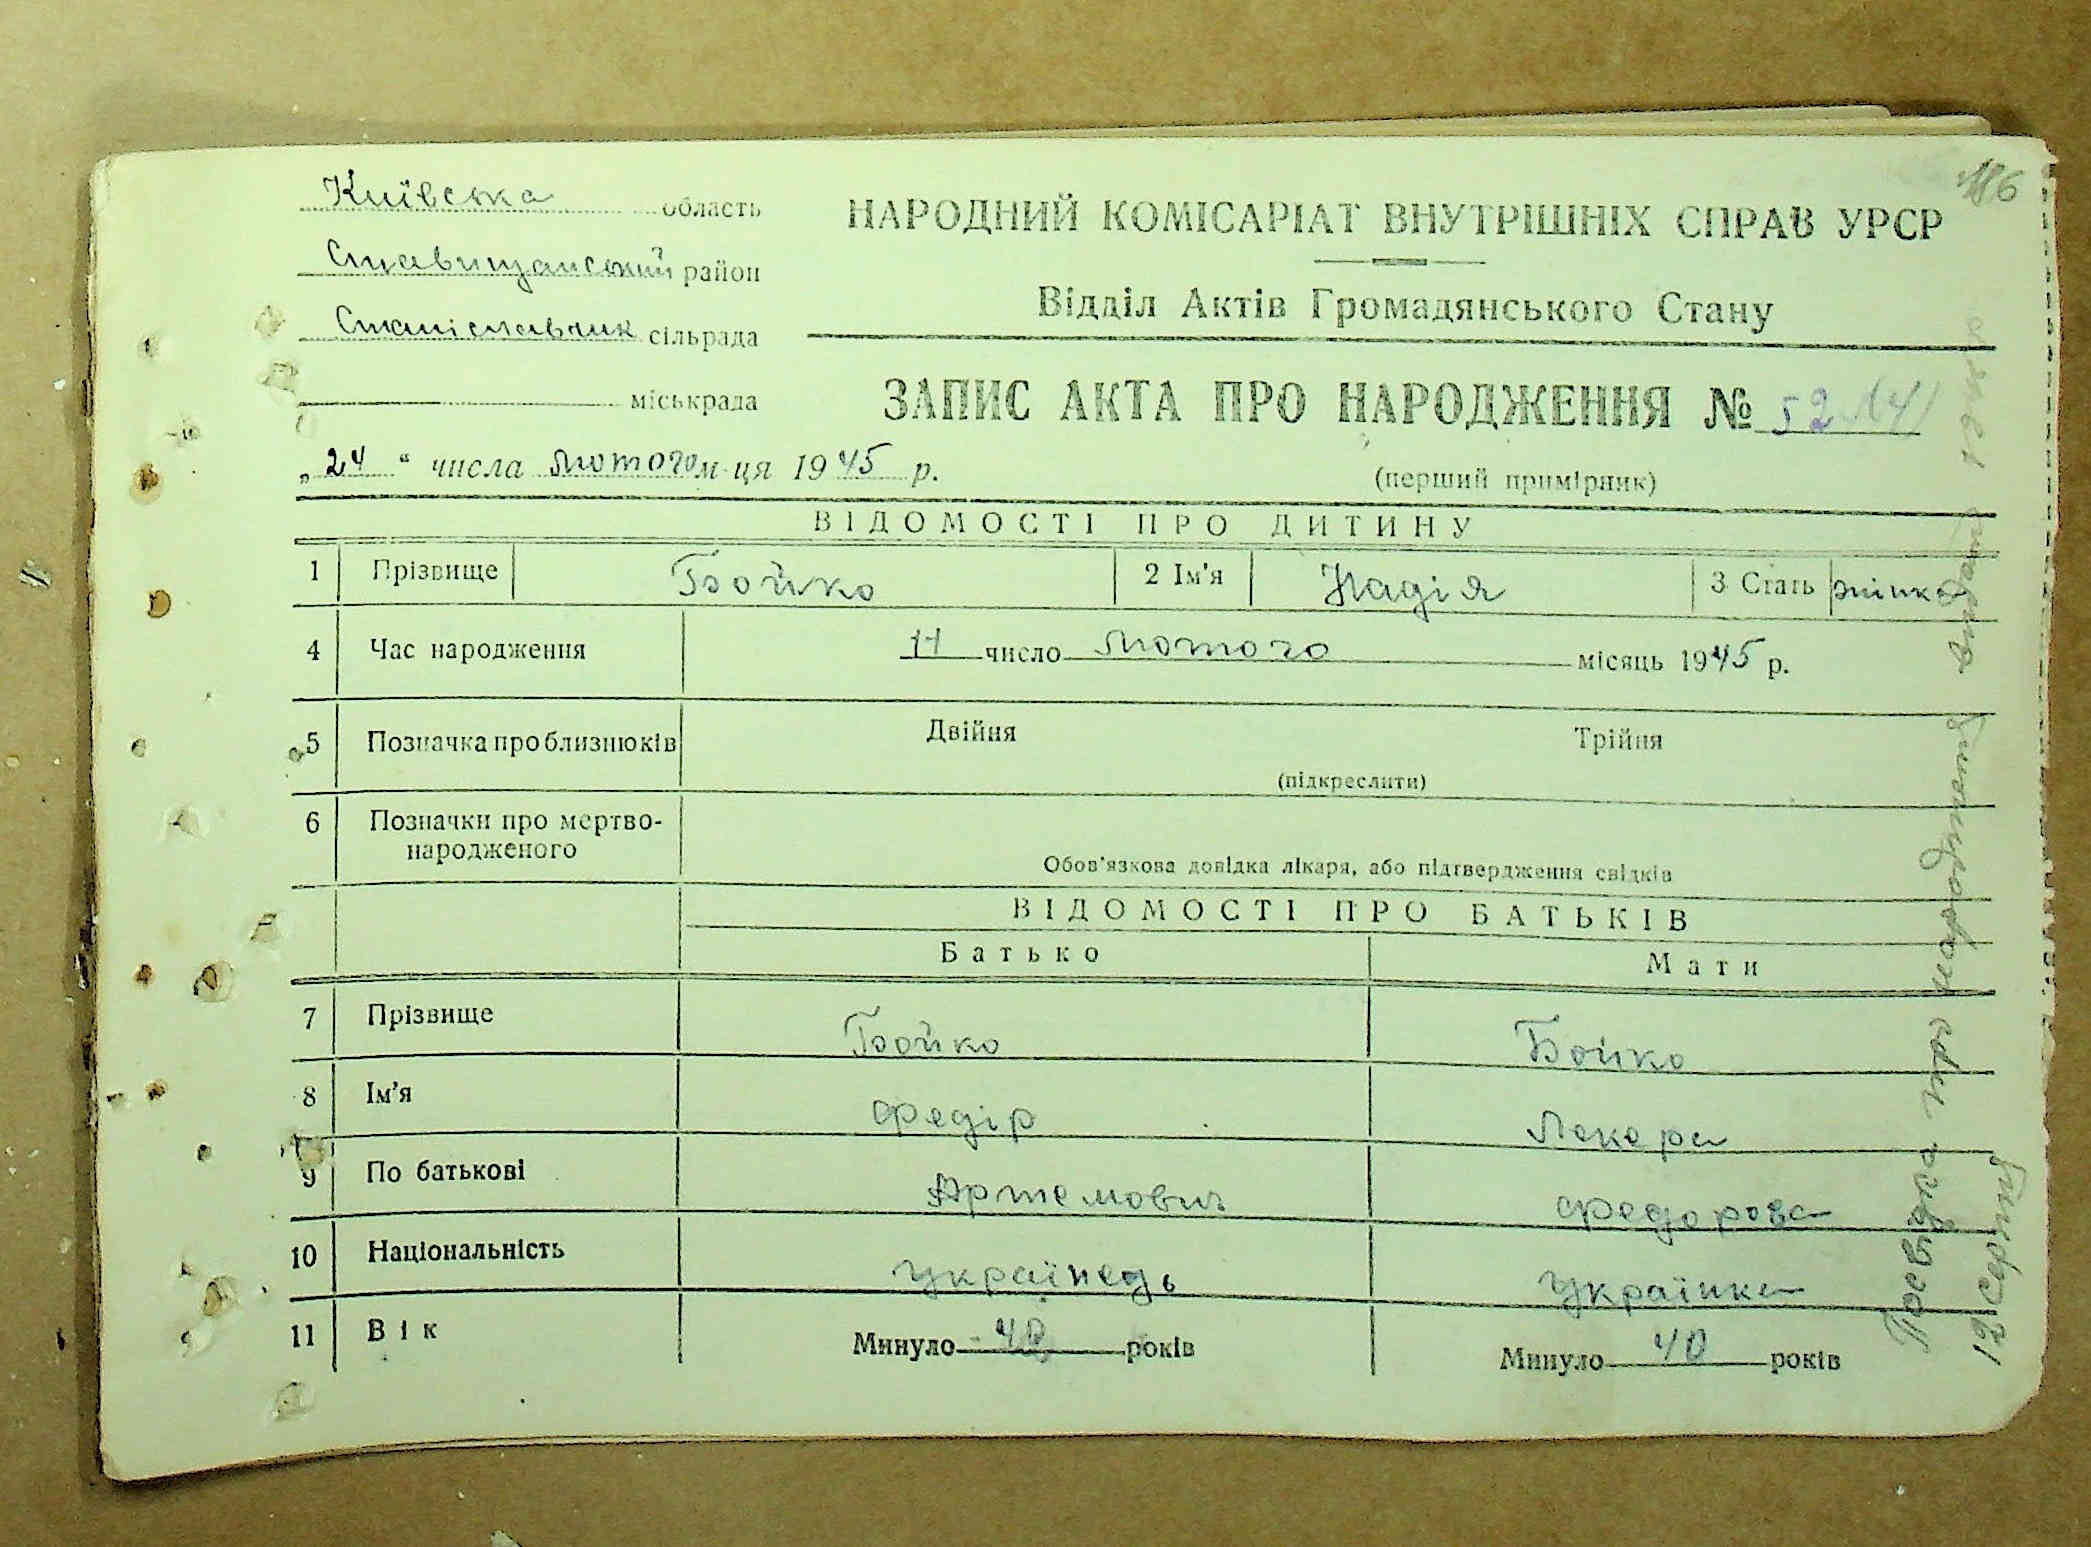 186
Київська область
НАРОДНИЙ КОМІСАРІАТ ВНУТРІШНІХ СПРАВ УРСР
Ставищанський район
Відділ Актів Громадянського Стану
Станіславчик сільрада
міськрада
ЗАПИС АКТА ПРО НАРОДЖЕННЯ № 52
„24“ числа лютого м-ця 1945 р.
(перший примірник)
ВІДОМОСТІ ПРО ДИТИНУ
1 Прізвище Бойко 2 Ім'я Надія 3 Стать жінка
4 Час народження 11 число лютого місяць 1945 р.
5 Позначка про близнюків Двійня Трійня
(підкреслити)
6 Позначки про мертво-
народженого
Обов'язкова довідка лікаря, або підтвердження свідків
ВІДОМОСТІ ПРО БАТЬКІВ
Батько Мати
7 Прізвище Бойко Бойко
8 Ім'я Федір
9 По батькові Артемович Федорова
10 Національність українець українка
11 Вік Минуло 40 років Минуло 40 років
Посвідка про народження видана
12 серпня